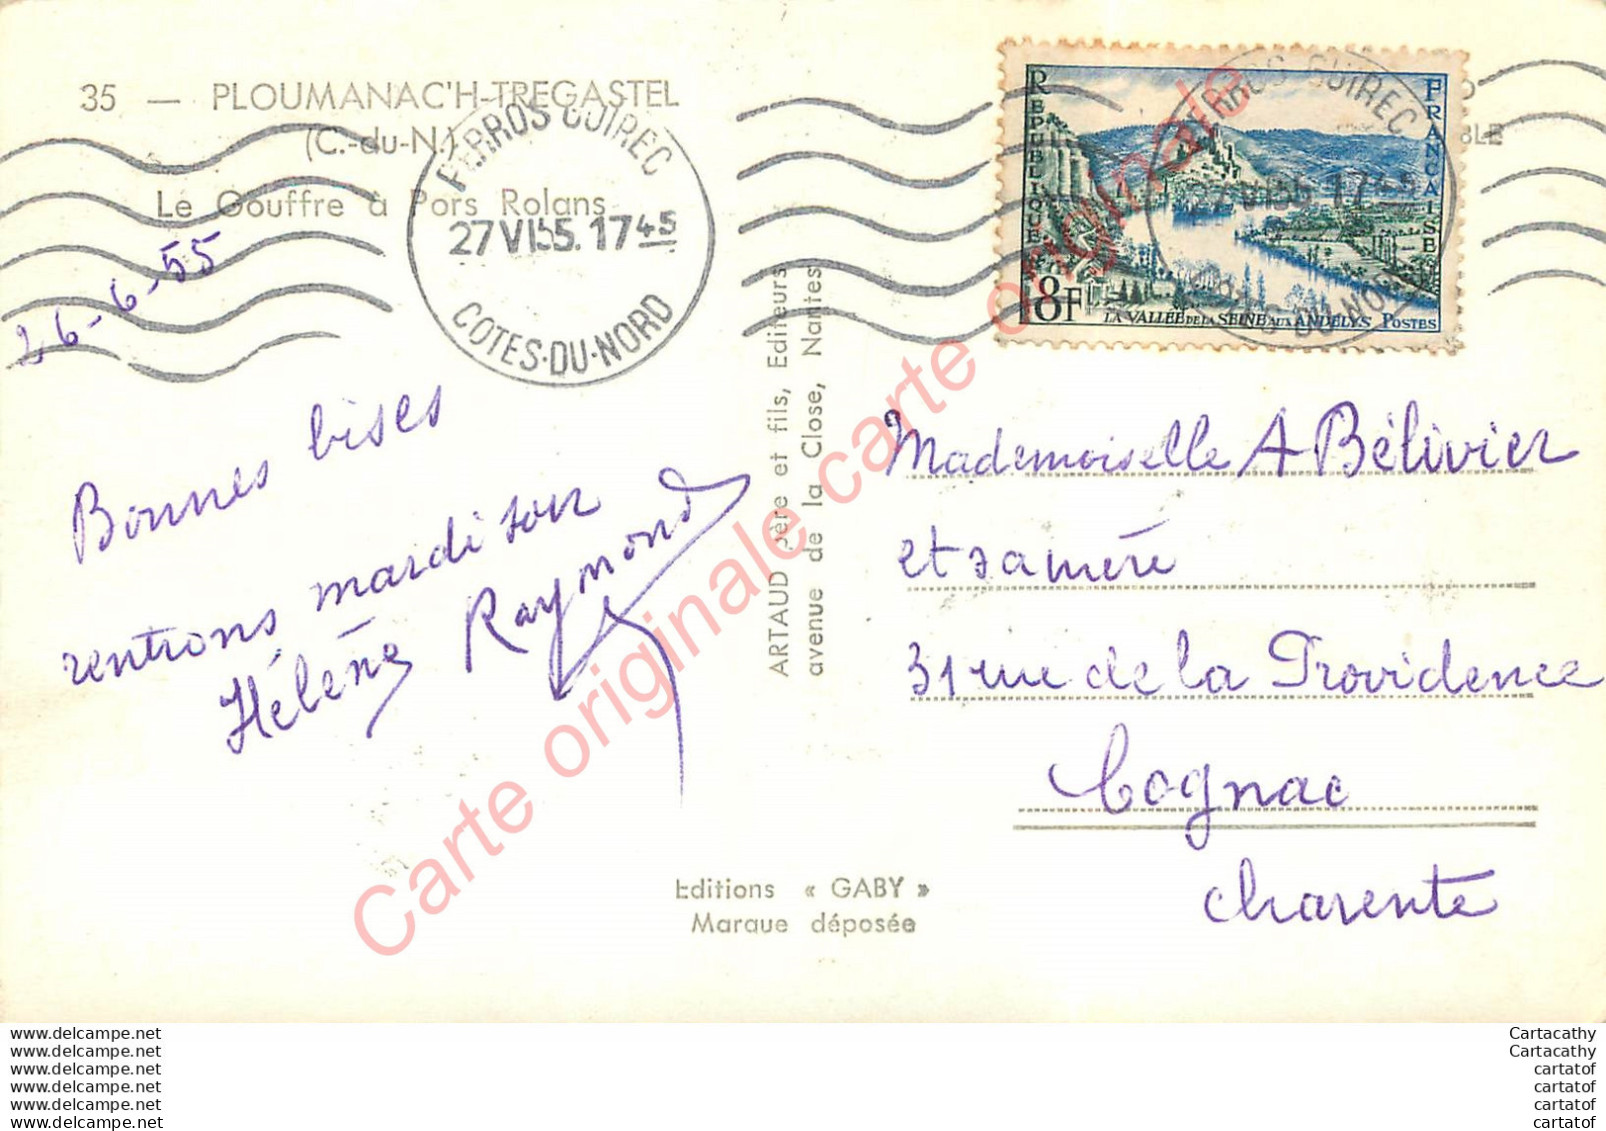 35 — PLOUMANAC'H-TREGASTEL
(C.-du-N.)
Le Gouffre à Pors Rolans
26-6-55
PERROS GUIREC
27 VI 55. 17 45
COTES-DU-NORD
Bonnes bises
rentrons mardi soir
Hélène Raymond
ARTAUD père et fils, Editeurs
avenue de la Close, Nantes
Editions « GABY »
Marque déposée
REPUBLIQUE FRANCAISE
18F
LA VALLÉE DE LA SEINE AUX ANDELYS POSTES
PERROS GUIREC
27 VI 55 17 45
COTES-DU-NORD
Mademoiselle A Bélivier
et sa mère
31 rue de la Providence
Cognac
Charente
Carte originale carte originale
www.delcampe.net
www.delcampe.net
www.delcampe.net
www.delcampe.net
www.delcampe.net
www.delcampe.net
Cartacathy
Cartacathy
cartatof
cartatof
cartatof
cartatof